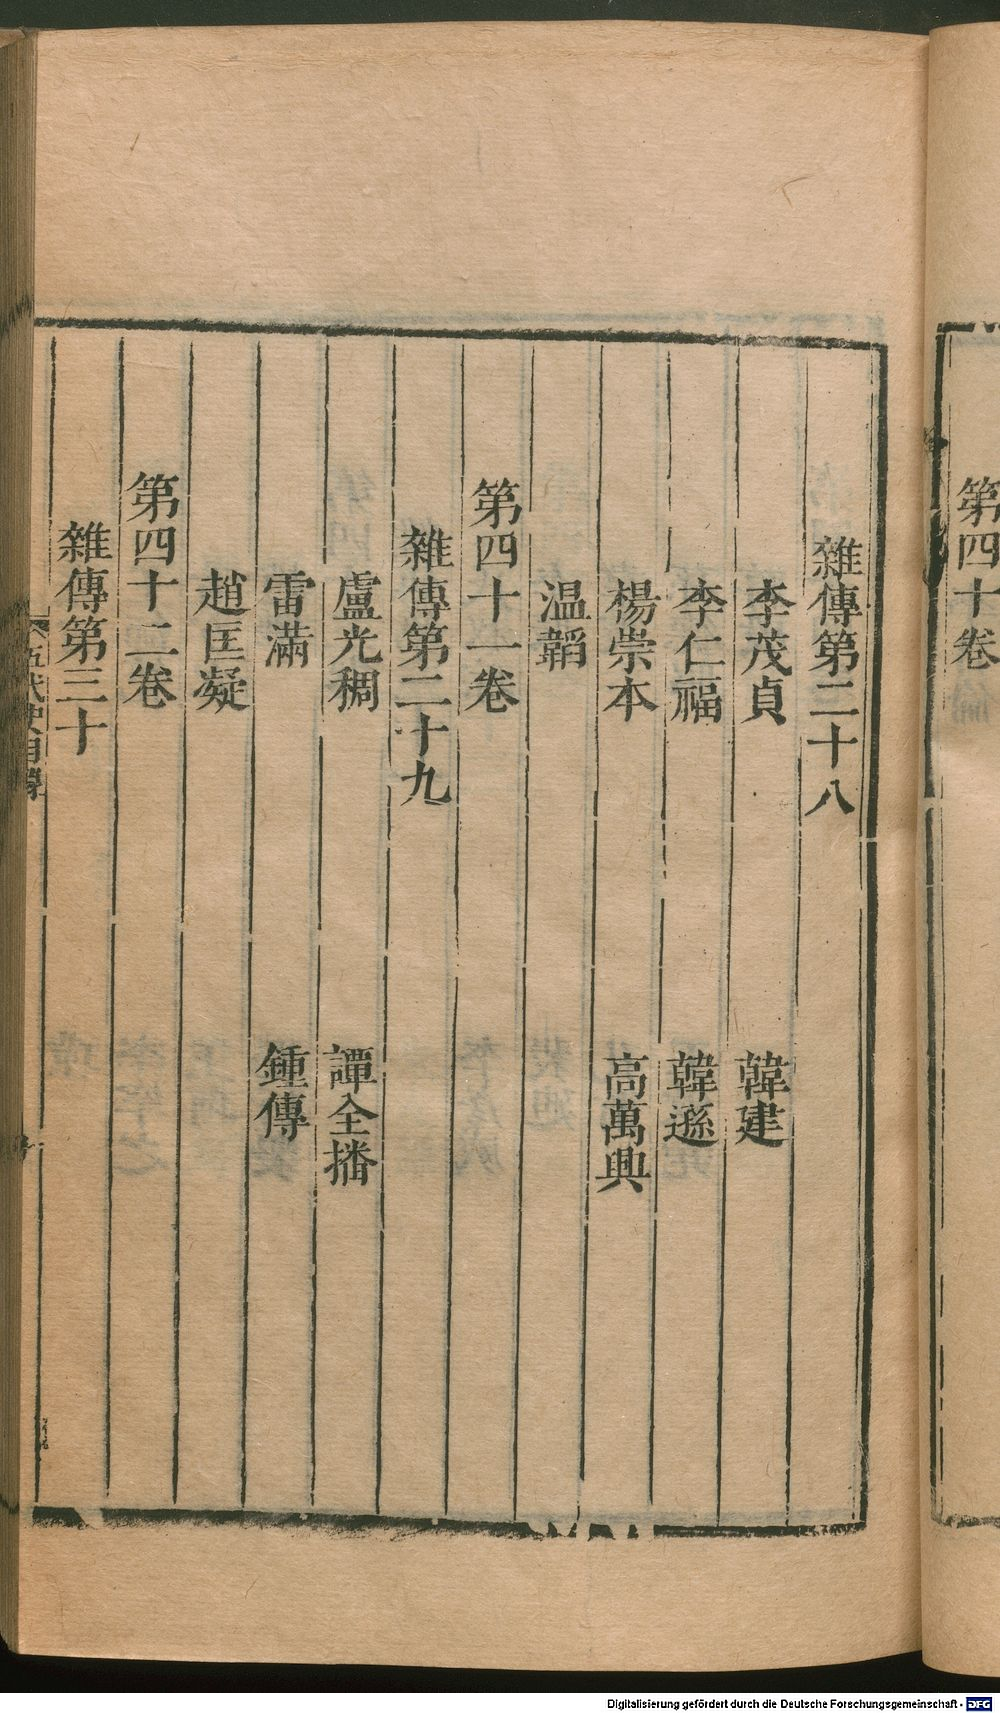 第四十卷
雜傳第二十八
李茂貞 韓建
李仁福 韓遜
楊崇本 高萬興
温韜
第四十一卷
雜傳第二十九
盧光稠 譚全播
雷滿 鍾傳
趙匡凝
第四十二卷
雜傳第三十
五代史目錄
Digitalisierung gefördert durch die Deutsche Forschungsgemeinschaft - DFG